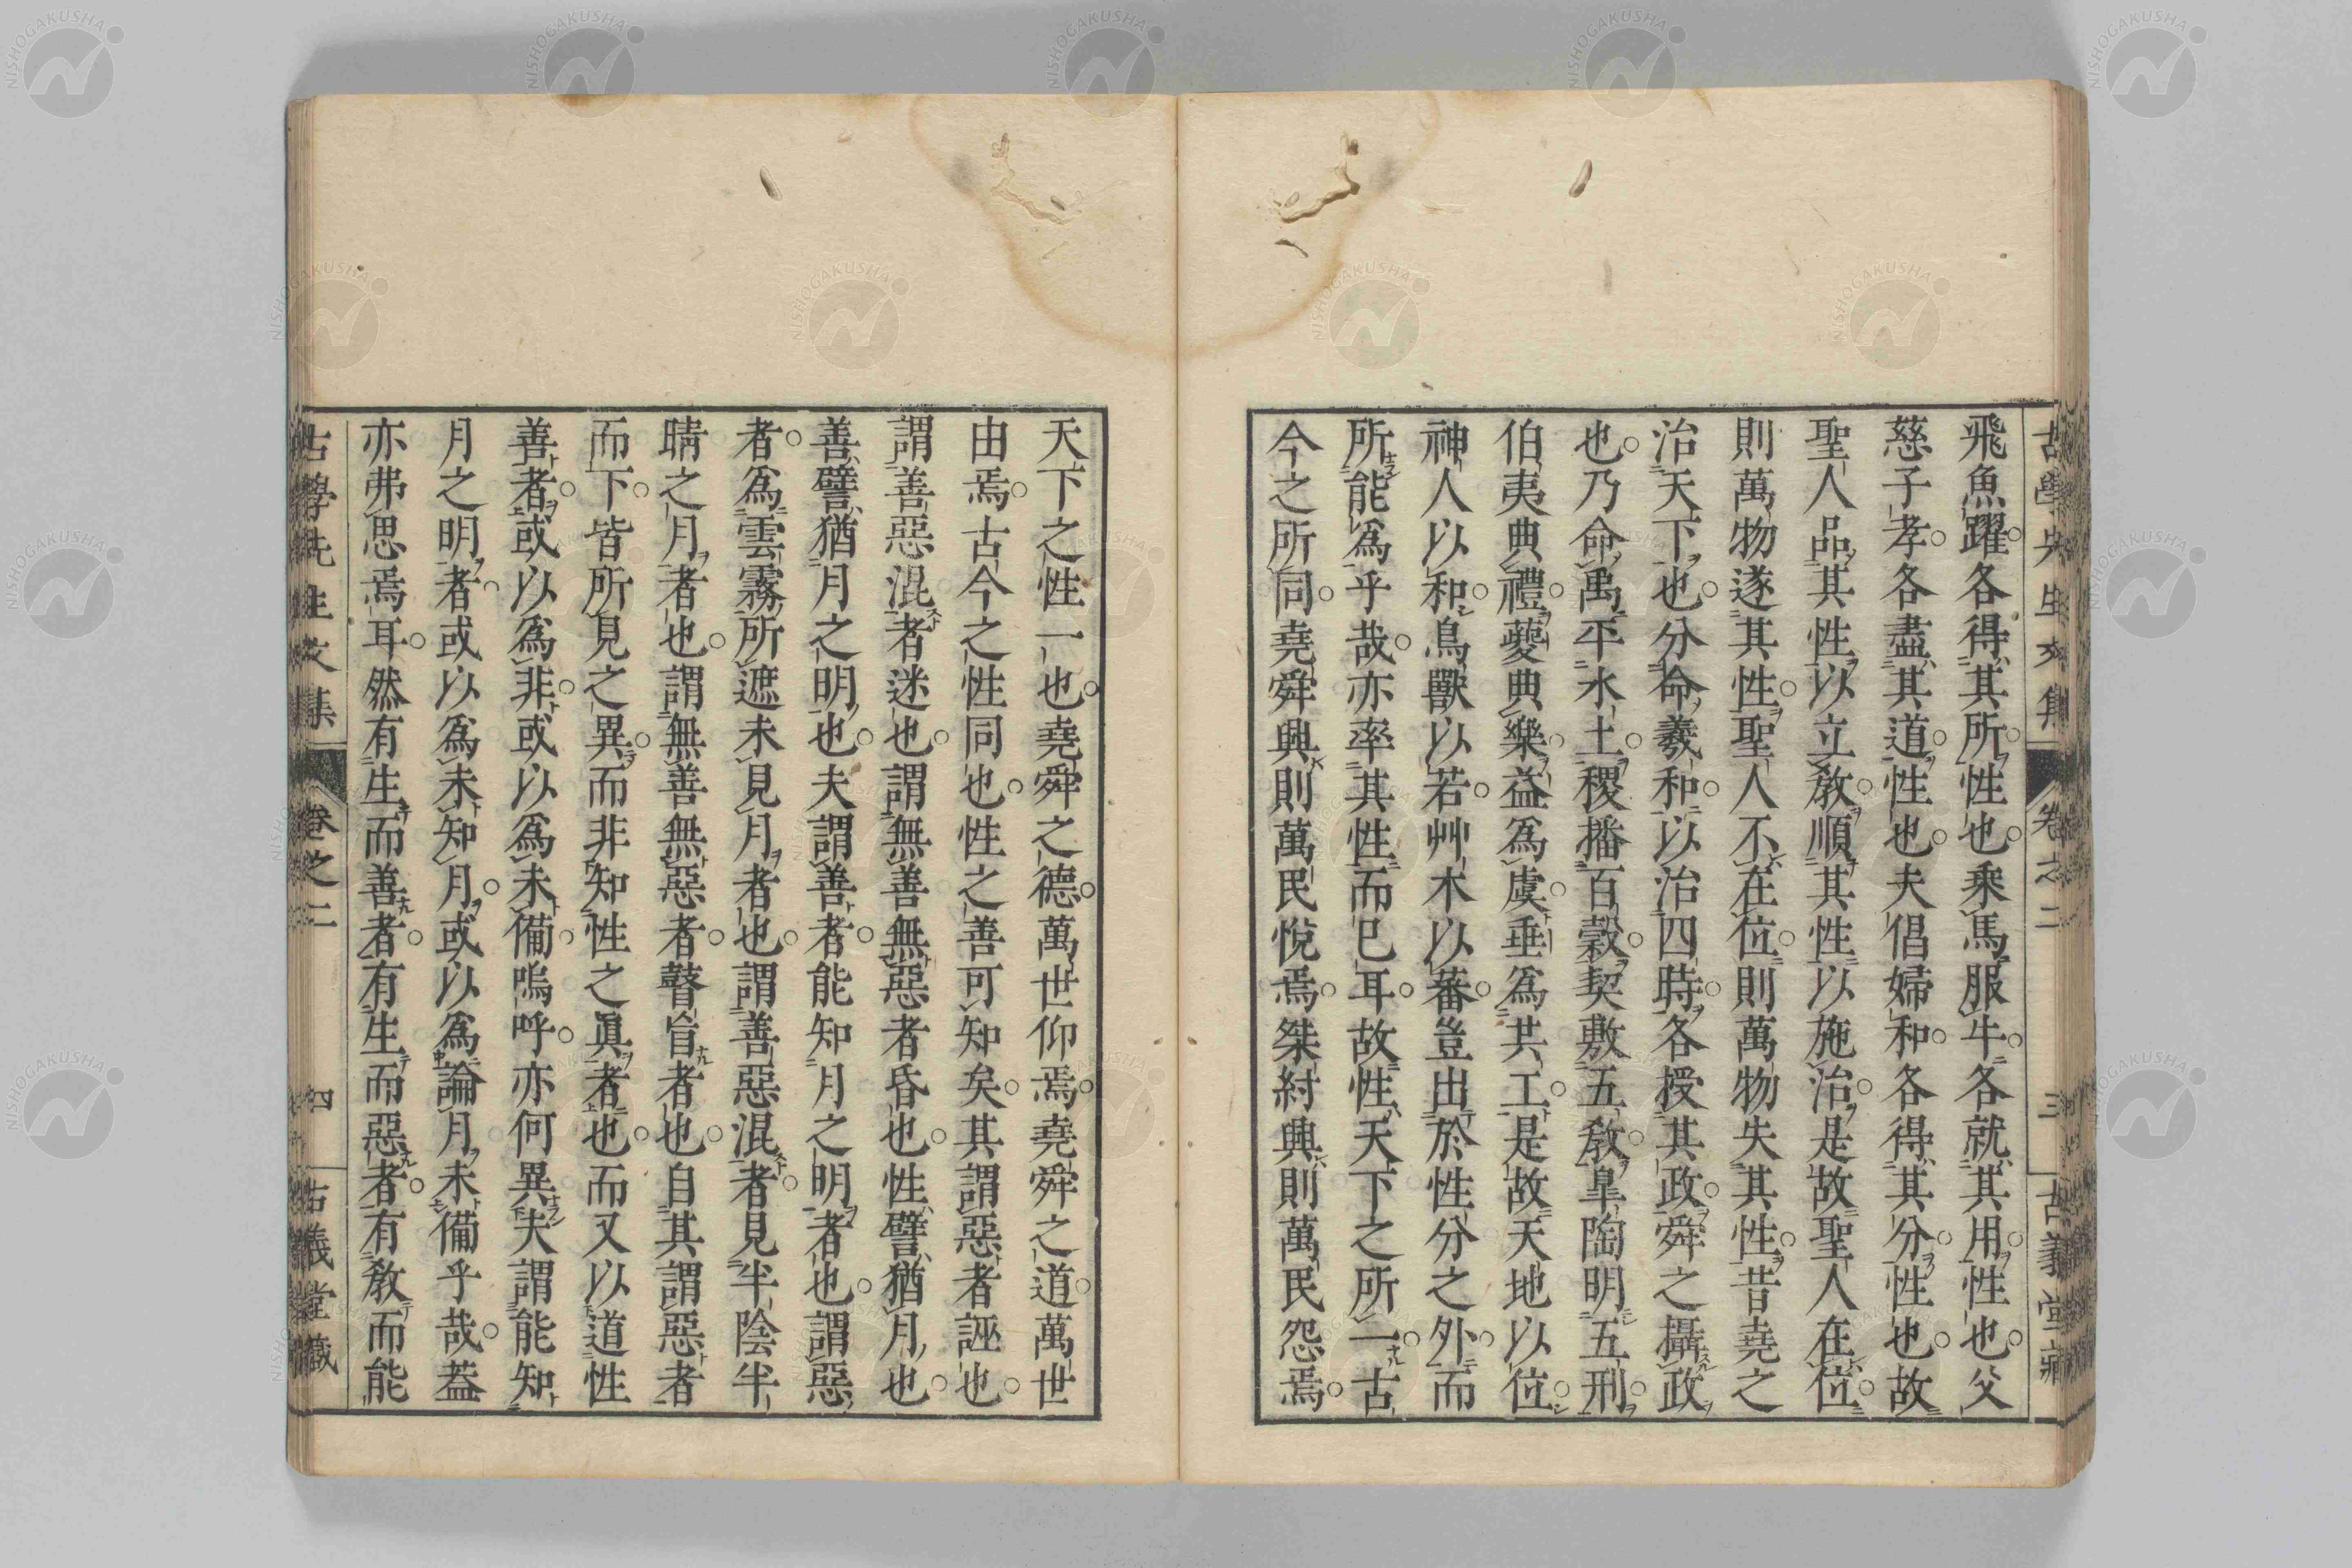 古學先生文集 卷之二 三 古義堂藏
飛魚躍各得其所性也乘馬服牛各就其用性也父
慈子孝各盡其道性也夫倡婦和各得其分性也故
聖人品其性以立教順其性以施治是故聖人在位
則萬物遂其性聖人不在位則萬物失其性昔堯之
治天下也分命羲和以治四時各授其政舜之攝政
也乃命禹平水土稷播百穀契敷五教皐陶明五刑
伯夷典禮夔典樂益爲虞垂爲共工是故天地以位
神人以和鳥獸以若艸木以蕃豈出於性分之外而
所能爲乎哉亦率其性而已耳故性天下之所一古
今之所同堯舜興則萬民悅焉桀紂興則萬民怨焉
天下之性一也堯舜之德萬世仰焉堯舜之道萬世
由焉古今之性同也性之善可知矣其謂惡者誣也
謂善惡混者迷也謂無善無惡者昏也性譬猶月也
善譬猶月之明也夫謂善者能知月之明者也謂惡
者爲雲霧所遮未見月者也謂善惡混者見半陰半
晴之月者也謂無善無惡者瞽盲者也自其謂惡者
而下皆所見之異而非知性之眞者也而又以道性
善者或以爲非或以爲未備嗚呼亦何異夫謂能知
月之明者或以爲未知月或以爲論月未備乎哉蓋
亦弗思焉耳然有生而善者有生而惡者有教而能
古學先生文集 卷之二 四 古義堂藏
NISHOGAKUSHA